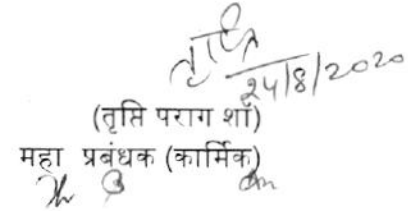 तृप्ति
24/8/2020
(तृप्ति पराग शॉ)
महा प्रबंधक (कार्मिक)